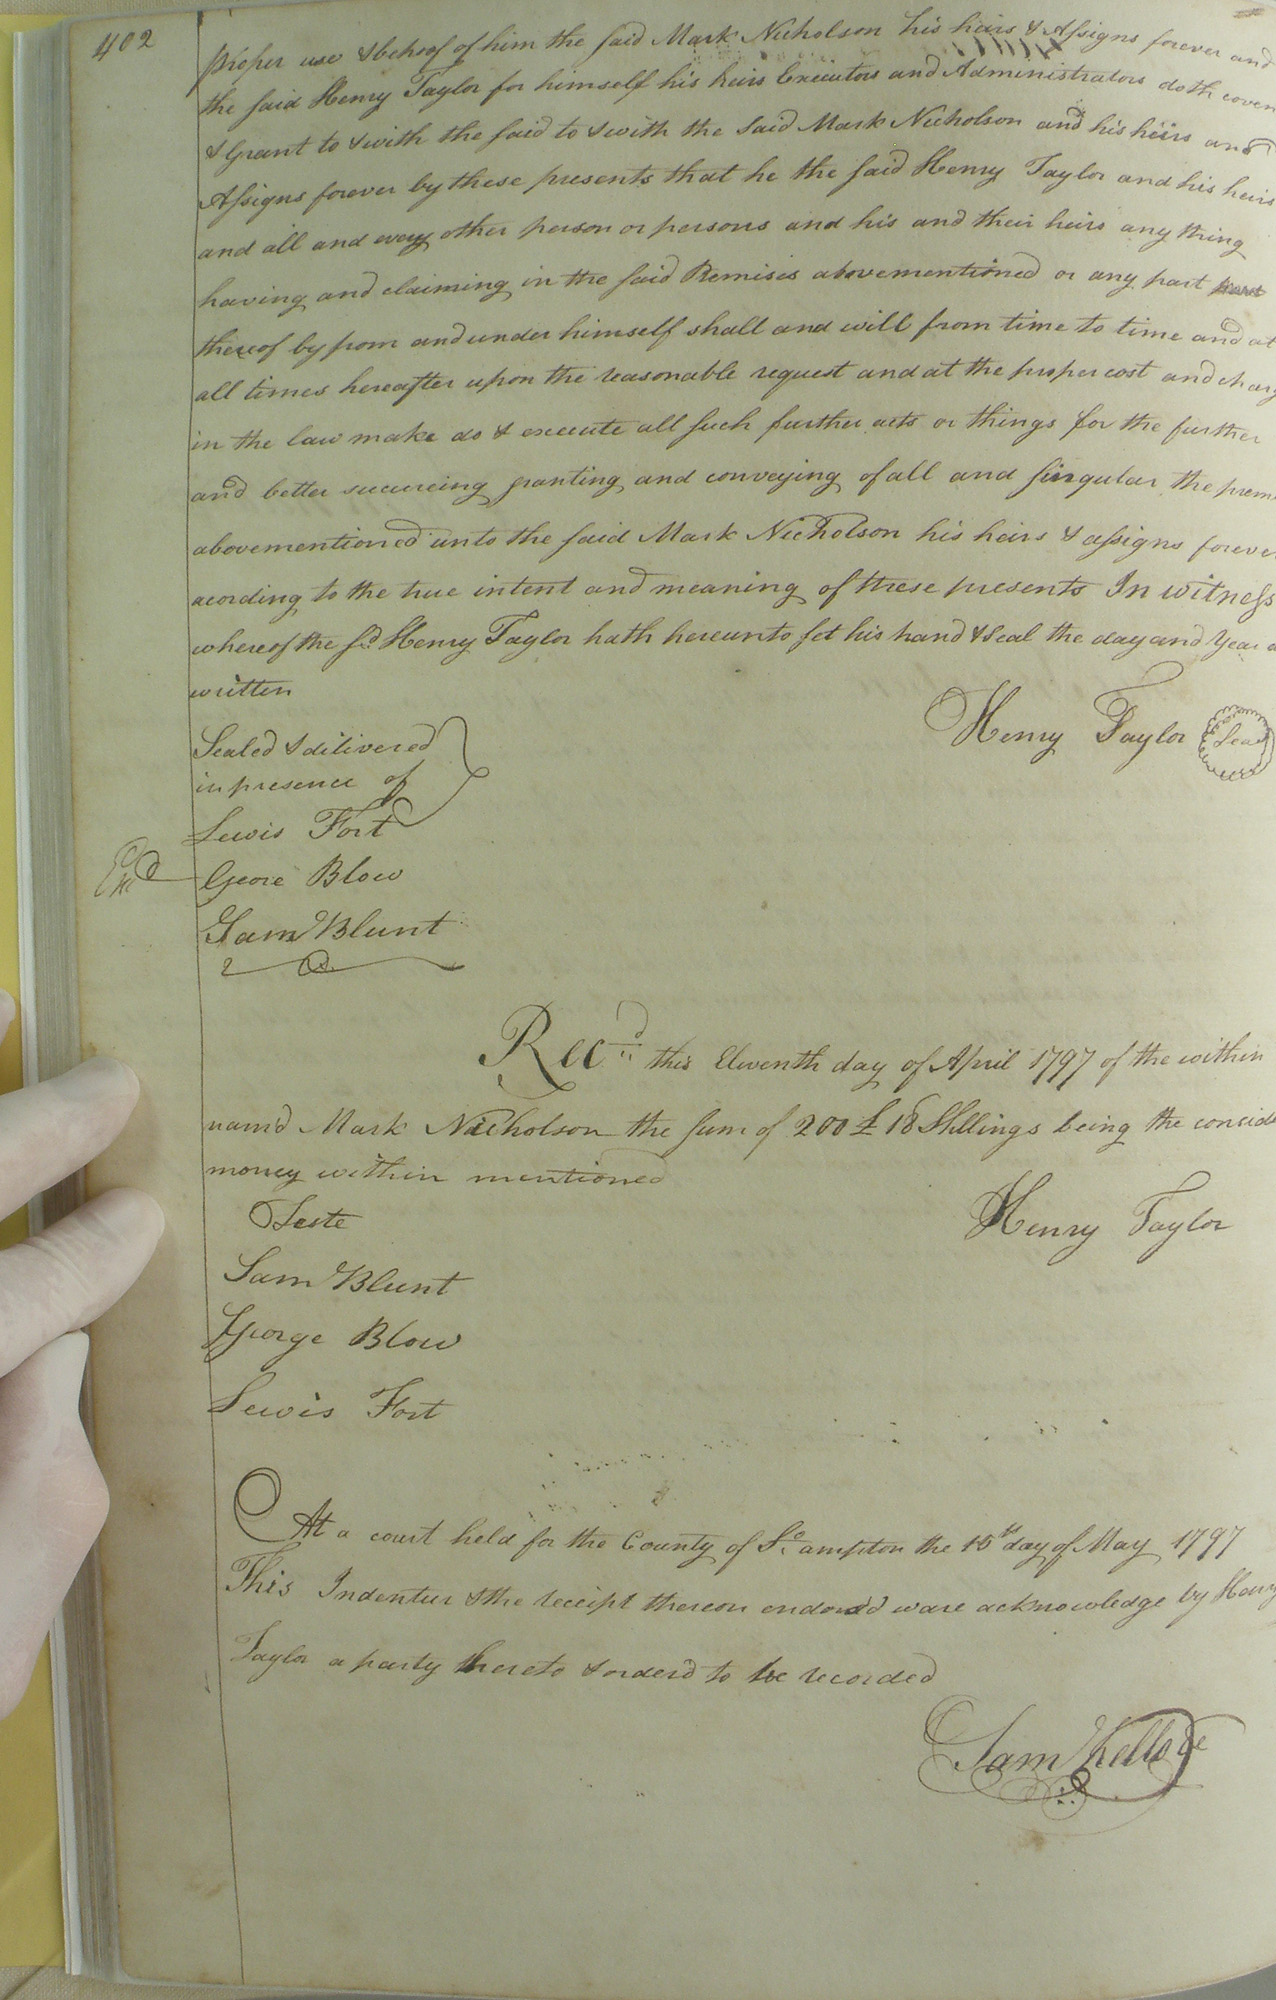 402
proper use & behoof of him the said Mark Nicholson his heirs & Assigns forever and
the said Henry Taylor for himself his heirs Executors and Administrators doth coven
& Grant to & with the said to & with the said Mark Nicholson and his heirs and
Assigns forever by these presents that he the said Henry Taylor and his heirs
and all and every other person or persons and his and their heirs any thing
having and claiming in the said Premises abovementioned or any part
thereof by from and under himself shall and will from time to time and at
all times hereafter upon the reasonable request and at the proper cost and charg
in the law make do & execute all such further acts or things for the further
and better secureing granting and conveying of all and singular the prem
abovementioned unto the said Mark Nicholson his heirs & assigns forever
acording to the true intent and meaning of these presents In witness
whereof the sd. Henry Taylor hath hereunto set his hand & Seal the day and Year a
written
Henry Taylor Seal
Sealed & dilivered
in presence of
Lewis Fort
Exd
Geore Blow
Sam Blunt
Recd. this Eleventh day of April 1797 of the within
namd Mark Nicholson the sum of 200 £ 18 Shllings being the conside
money within mentioned
Henry Taylor
Teste
Sam Blunt
George Blow
Lewis Fort
At a court held for the County of So.ampton the 15th day of May 1797
This Indentur & the receipt thereon endorsd ware acknowledge by Henry
Taylor a party thereto & orderd to be recorded
Sam Kello